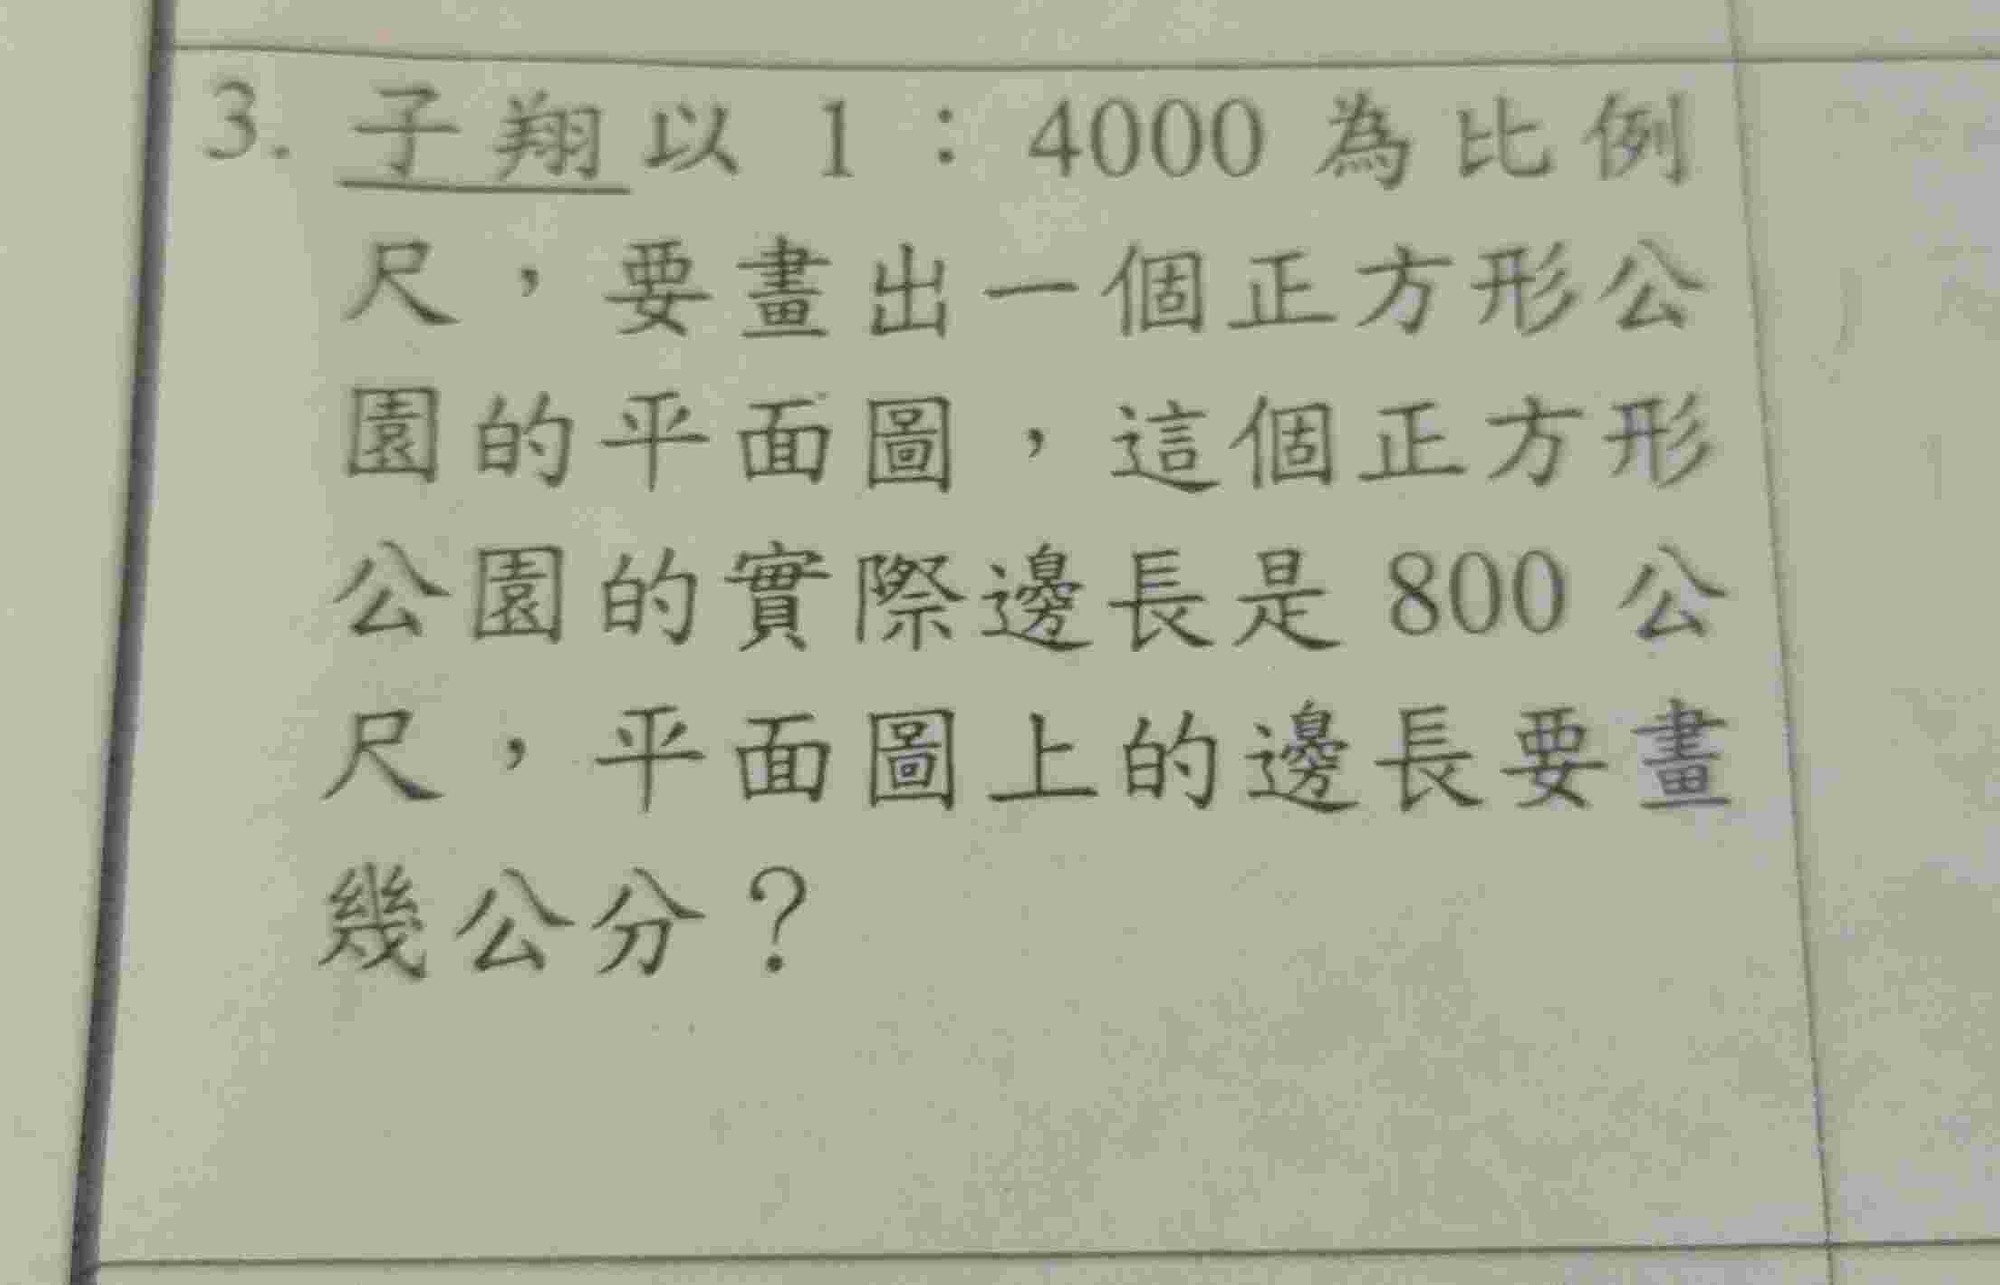 3. 子翔以 1：4000 為比例
尺，要畫出一個正方形公
園的平面圖，這個正方形
公園的實際邊長是 800 公
尺，平面圖上的邊長要畫
幾公分？